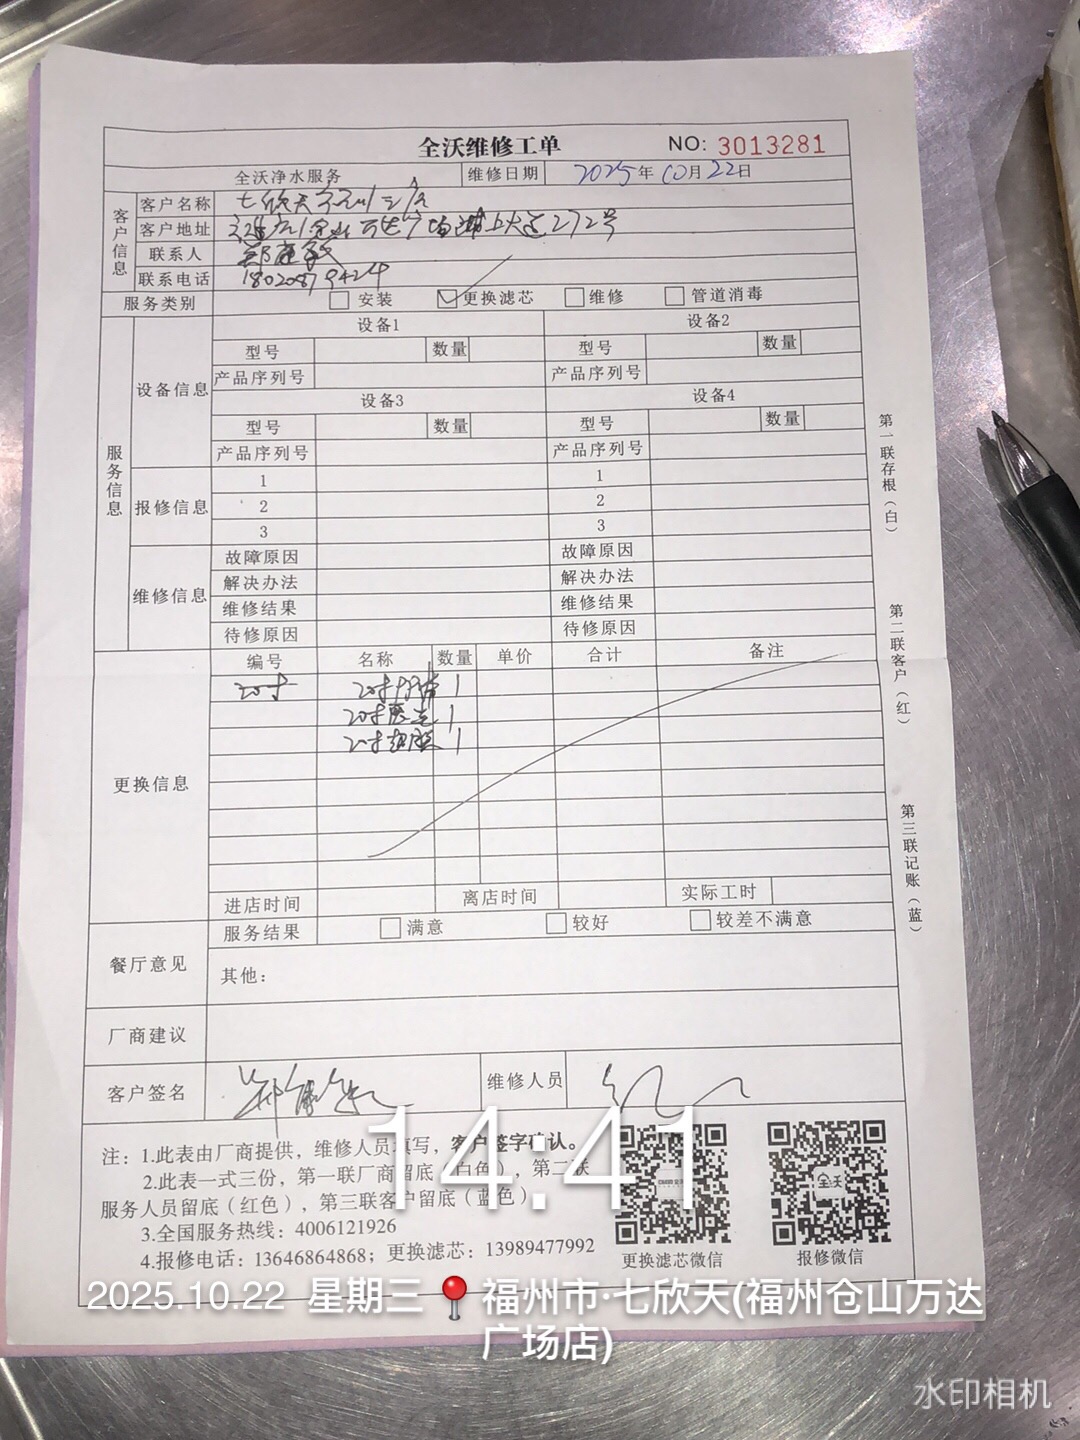 全沃维修工单 NO: 3013281
全沃净水服务 维修日期 2025年10月22日
客户信息
客户名称 七欣天
客户地址 万达广场浦上大道272号
联系人
联系电话 18020879424
服务类别 安装 更换滤芯 维修 管道消毒
服务信息
设备信息
设备1 设备2
型号 数量 型号 数量
产品序列号 产品序列号
设备3 设备4
型号 数量 型号 数量
产品序列号 产品序列号
报修信息
1 1
2 2
3 3
维修信息
故障原因 故障原因
解决办法 解决办法
维修结果 维修结果
待修原因 待修原因
更换信息
编号 名称 数量 单价 合计 备注
20寸 20寸 1
20寸 1
20寸 1
进店时间 离店时间 实际工时
餐厅意见
服务结果 满意 较好 较差不满意
其他：
厂商建议
客户签名 维修人员
注：1.此表由厂商提供，维修人员填写，客户签字确认。
2.此表一式三份，第一联厂商留底（白色），第二联
服务人员留底（红色），第三联客户留底（蓝色）
3.全国服务热线：4006121926
4.报修电话：13646864868；更换滤芯：13989477992
更换滤芯微信 报修微信
全天
第一联存根（白）
第二联客户（红）
第三联记账（蓝）
14:41
2025.10.22 星期三 福州市·七欣天(福州仓山万达
广场店)
水印相机